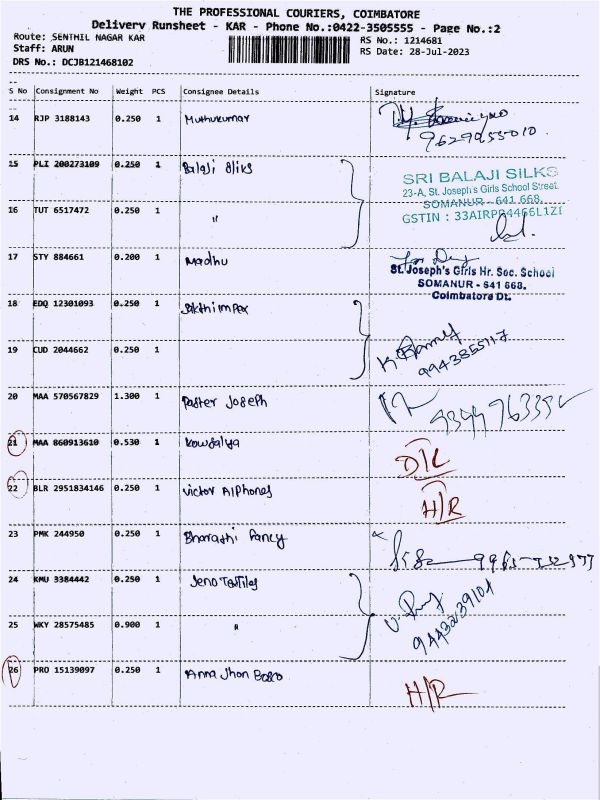 THE PROFESSIONAL COURIERS, COIMBATORE
Delivery Runsheet - KAR - Phone No.:0422-3505555 - Page No.:2
Route: SENTHIL NAGAR KAR
RS No.: 1214681
Staff: ARUN
RS Date: 28-Jul-2023
DRS No.: DCJB121468102
S No Consignment No Weight PCS Consignee Details Signature
14 RJP 3188143 0.250 1 Muthukumar
9629255010
15 PLI 200273109 0.250 1 Balaji Silks
SRI BALAJI SILKS
23-A, St. Joseph's Girls School Street
SOMANUR - 641 668.
16 TUT 6517472 0.250 1 "
GSTIN : 33AIRPB4466L1ZI
17 STY 884661 0.200 1 Madhu
St. Joseph's Girls Hr. Sec. School
SOMANUR - 641 668.
Coimbatore Dt.
18 EDQ 12301093 0.250 1 Sakthi impex
19 CUD 2044662 0.250 1
9943855117
20 MAA 570567829 1.300 1 Paster Joseph
21 MAA 860913610 0.530 1 Kowsalya
D/L
22 BLR 2951834146 0.250 1 Victor Alphones
H/R
23 PMK 244950 0.250 1 Bharathi Fancy
24 KMU 3384442 0.250 1 Jeno Textiles
9443239101
25 WKY 28575485 0.900 1 "
26 PRO 15139097 0.250 1 Anna Jhon Bosco
H/R